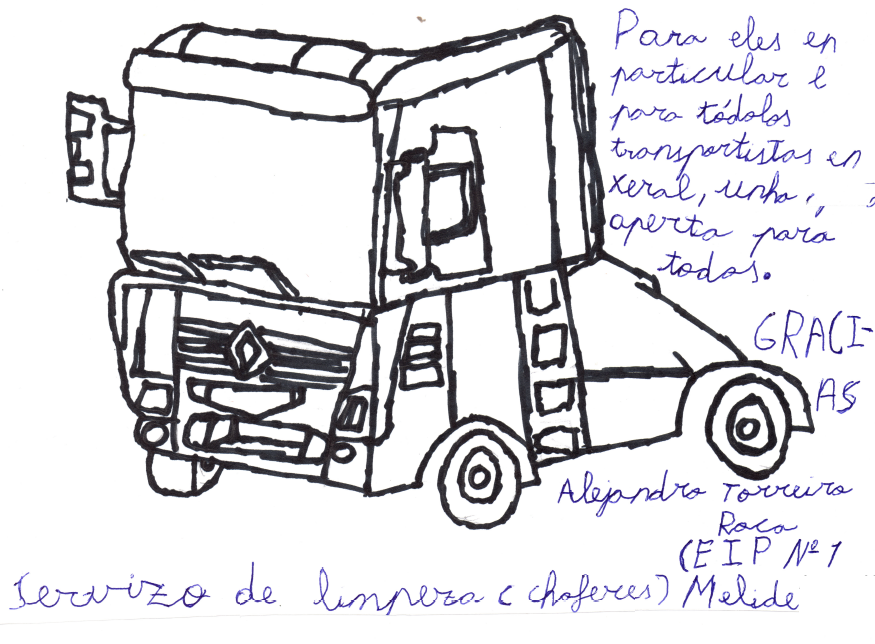 Para eles en
particular e
para tódolos
transportistas en
xeral, unha
aperta para
todos.
GRACI-
AS
Alejandro Torreiro
Roca
CEIP Nº 1
Servizo de limpeza (choferes) Melide